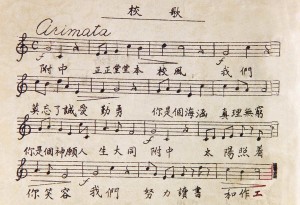 校歌
Arimata
附中 正正堂堂本校風, 我們
莫忘了誠愛勤勇 你是個海涵真理無窮
你是個神願人生大同 附中 太陽照著
你笑容 我們 努力讀書 和作工